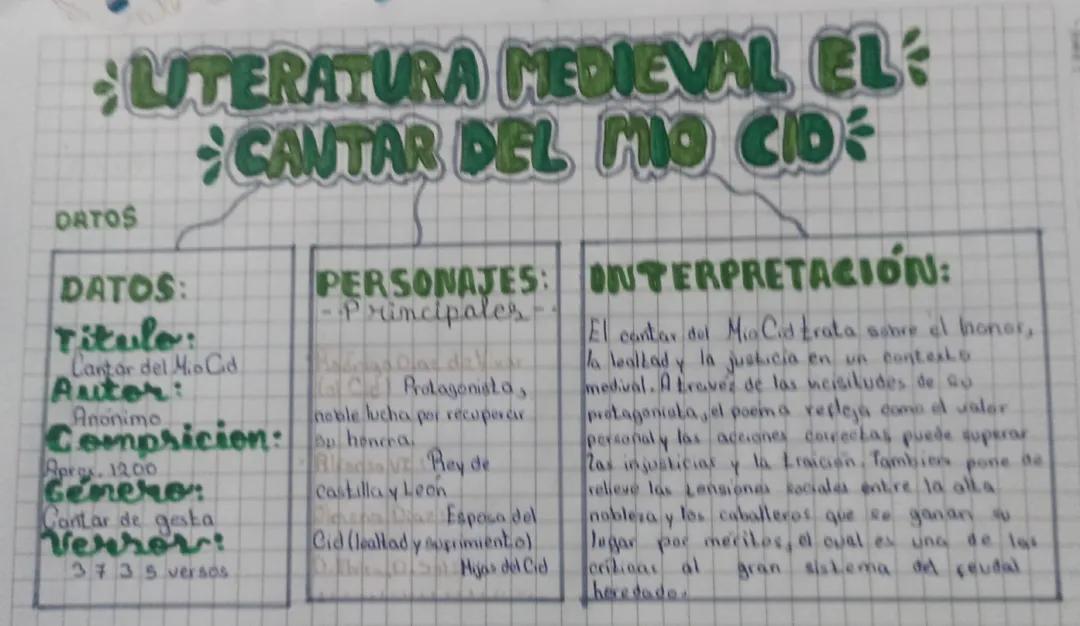 LITERATURA MEDIEVAL EL
CANTAR DEL MIO CID
DATOS
DATOS:
Titulo:
Cantar del Mio Cid
Autor:
Anónimo
Compsricion:
Aprox. 1200
Género:
Cantar de gesta
Versos:
3735 versos
PERSONAJES:
--Principales--
Rodrigo Díaz de Vivar
(el Cid) Protagonista,
noble lucha por recuperar
su honora.
Alfonso VI: Rey de
castilla y León
Jimena Díaz: Esposa del
Cid (lealtad y suprimiento)
Hijas del Cid
INTERPRETACIÓN:
El cantar del Mio Cid trata sobre el honor,
la lealtad y la justicia en un contexto
medival. A traves de las vicisitudes de su
protagonista, el poema refleja como el valor
personal y las acciones correctas puede superar
las injusticias y la traición. Tambien pone de
relieve las tensiones sociales entre la alta
nobleza y los caballeros que se ganan su
lugar por meritos, el cual es una de las
criticas al gran sistema del feudal
heredado.